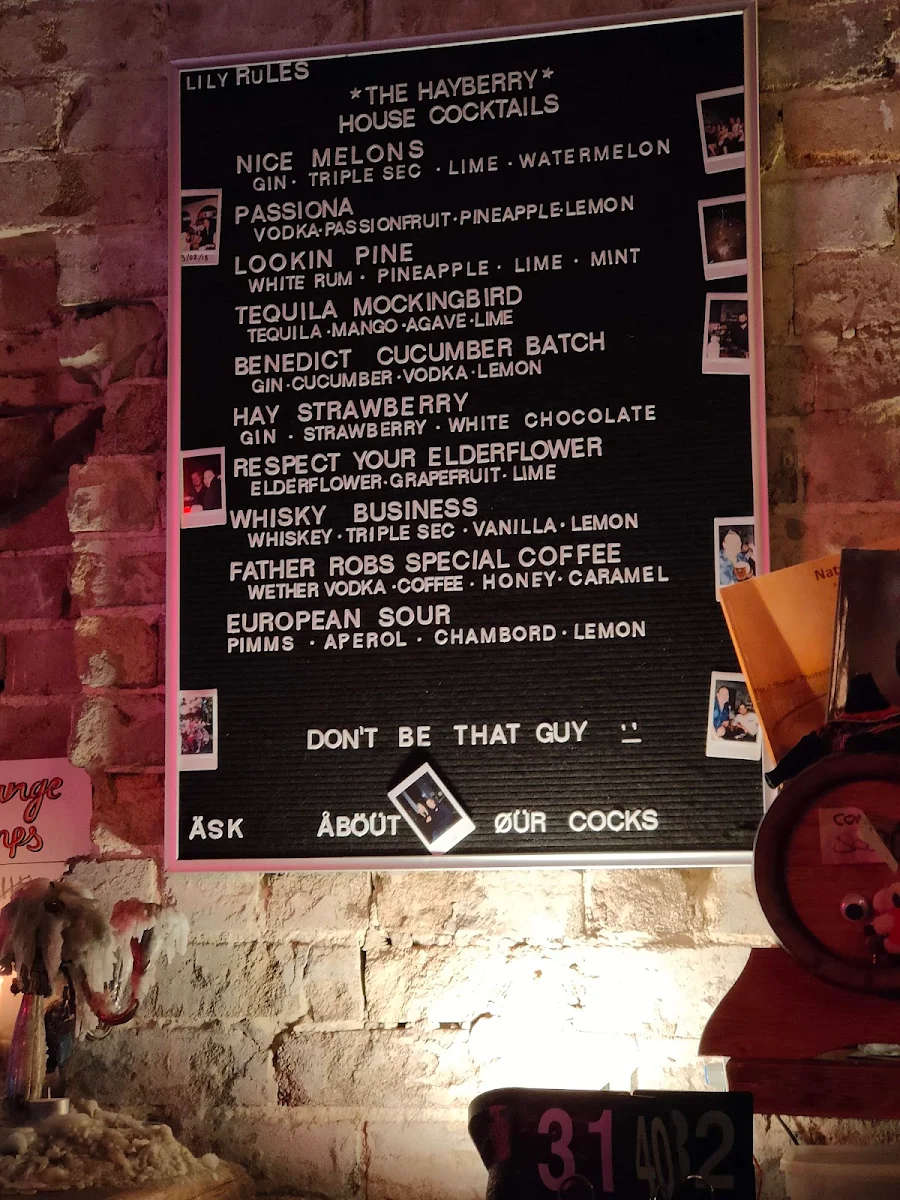 LILY RuLES
*THE HAYBERRY*
HOUSE COCKTAILS
NICE MELONS
GIN · TRIPLE SEC · LIME · WATERMELON
PASSIONA
VODKA·PASSIONFRUIT·PINEAPPLE·LEMON
LOOKIN PINE
WHITE RUM · PINEAPPLE · LIME · MINT
TEQUILA MOCKINGBIRD
TEQUILA·MANGO·AGAVE·LIME
BENEDICT CUCUMBER BATCH
GIN·CUCUMBER·VODKA·LEMON
HAY STRAWBERRY
GIN · STRAWBERRY · WHITE CHOCOLATE
RESPECT YOUR ELDERFLOWER
ELDERFLOWER·GRAPEFRUIT·LIME
WHISKY BUSINESS
WHISKEY·TRIPLE SEC·VANILLA·LEMON
FATHER ROBS SPECIAL COFFEE
WETHER VODKA·COFFEE·HONEY·CARAMEL
EUROPEAN SOUR
PIMMS · APEROL · CHAMBORD·LEMON
DON'T BE THAT GUY
ÄSK ÅBÖÜT ØÜR COCKS
Nat
31